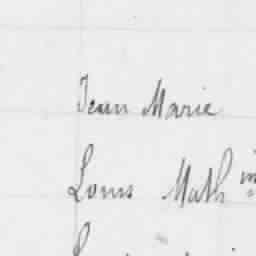 Jean Marie
Louis Math in